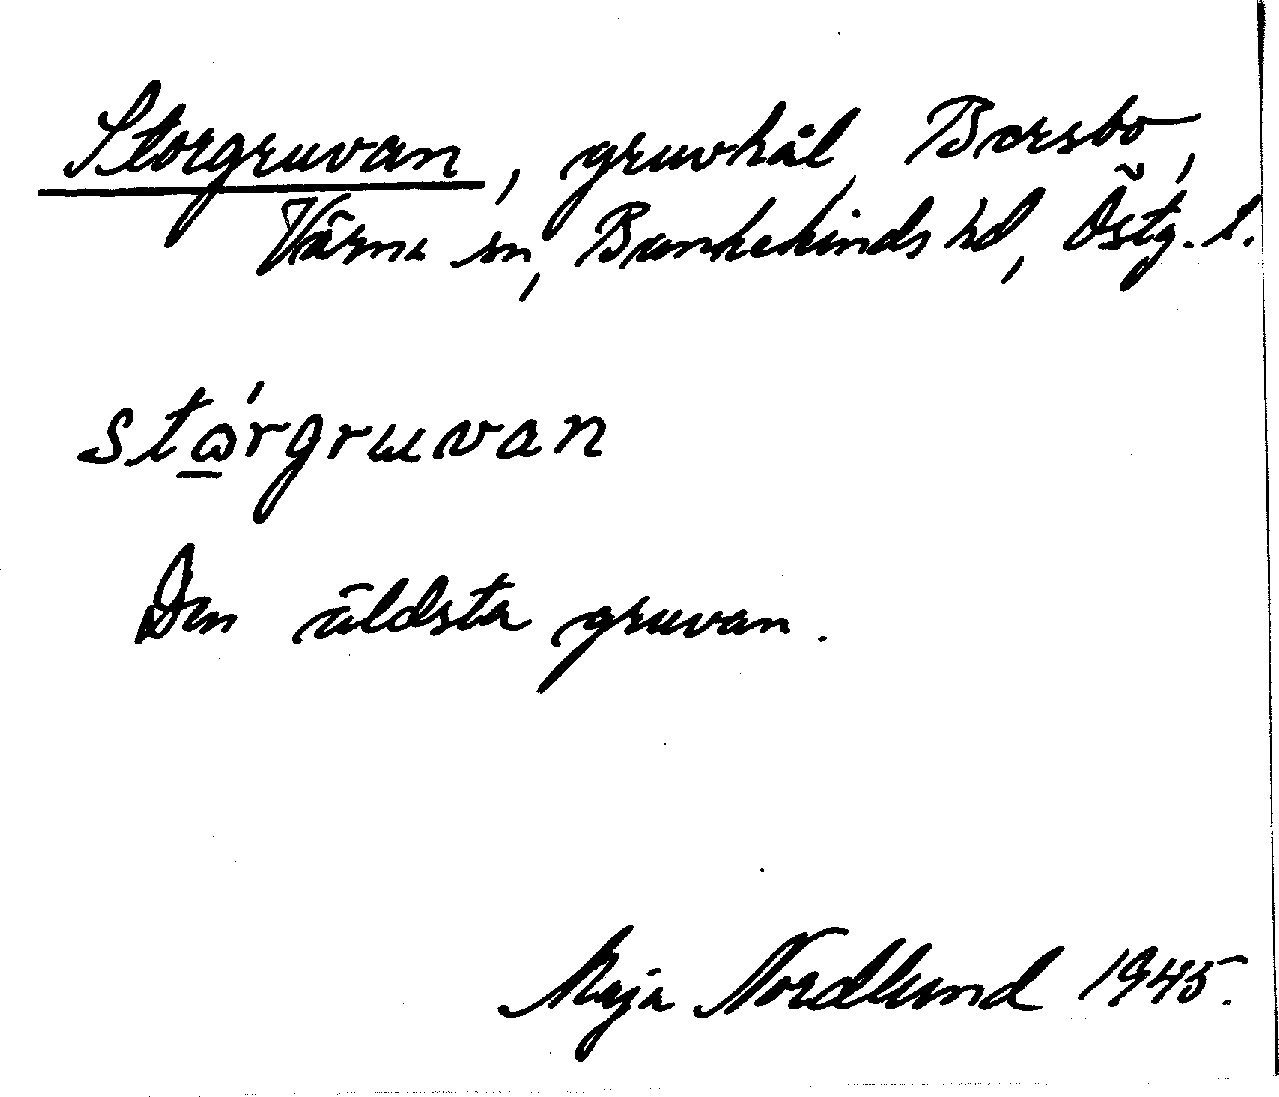 Storgruvan, gruvhål, Bersbo,
Värna sn, Bankekinds hd, Östg. l.
stώ̲rgruvan
Den äldsta gruvan.
Maja Nordlund 1945.